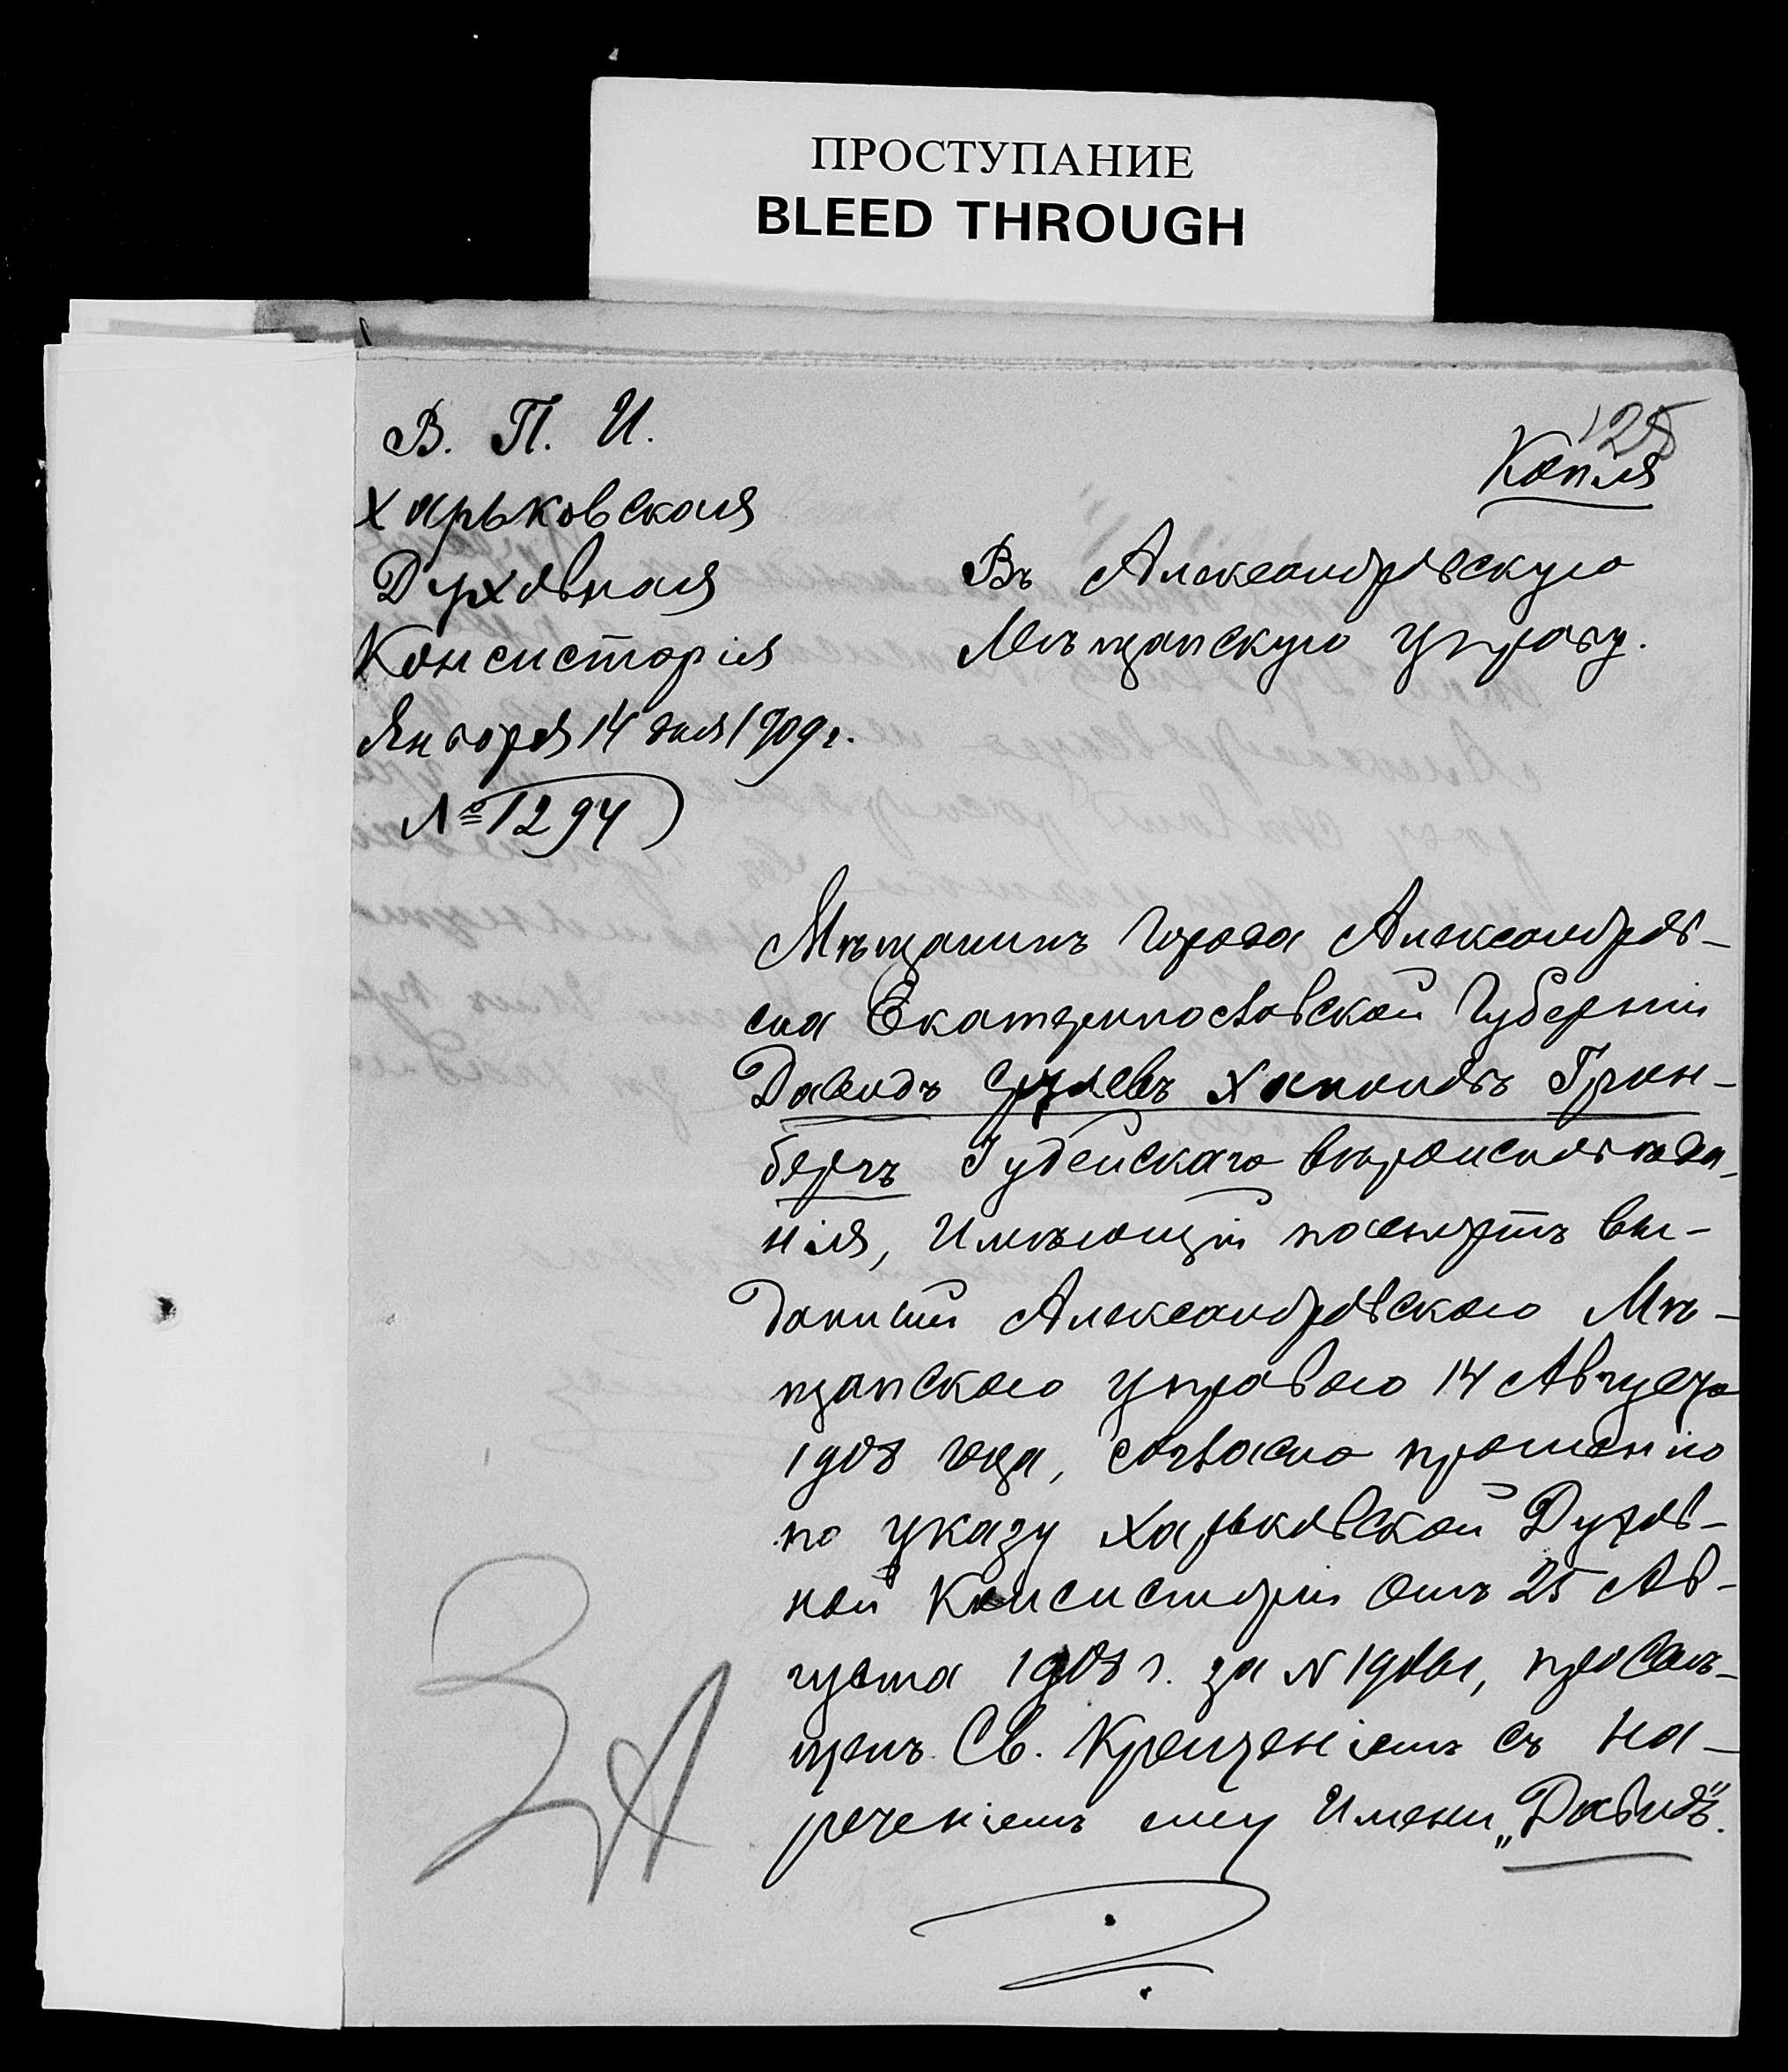 ПРОСТУПАНИЕ
BLEED THROUGH
125
Копія
В. П. И.
Харьковская
Духовная
Консисторія
Января 14 дня 1909 г.
№ 1294
Въ Александровскую
Мѣщанскую управу.
Мѣщанинъ города Александров-
ска Екатеринославской Губерніи
Давидъ Хаимовъ Грин-
бергъ Іудейскаго вѣроисповѣда-
нія, Имѣющій паспортъ вы-
данный Александровскою Мѣ-
щанскою управою 14 Августа
1908 года, согласно прошенію
по указу Харьковской Духов-
ной Консисторіи отъ 25 Ав-
густа 1908 г. за № просвѣ-
щенъ Св. Крещеніемъ съ на-
реченіемъ ему Имени „Давидъ“.